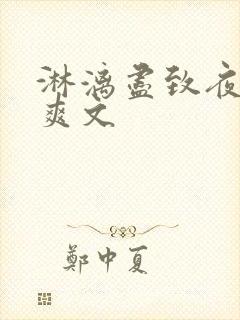 淋漓盡致夜
爽文
鄭中夏